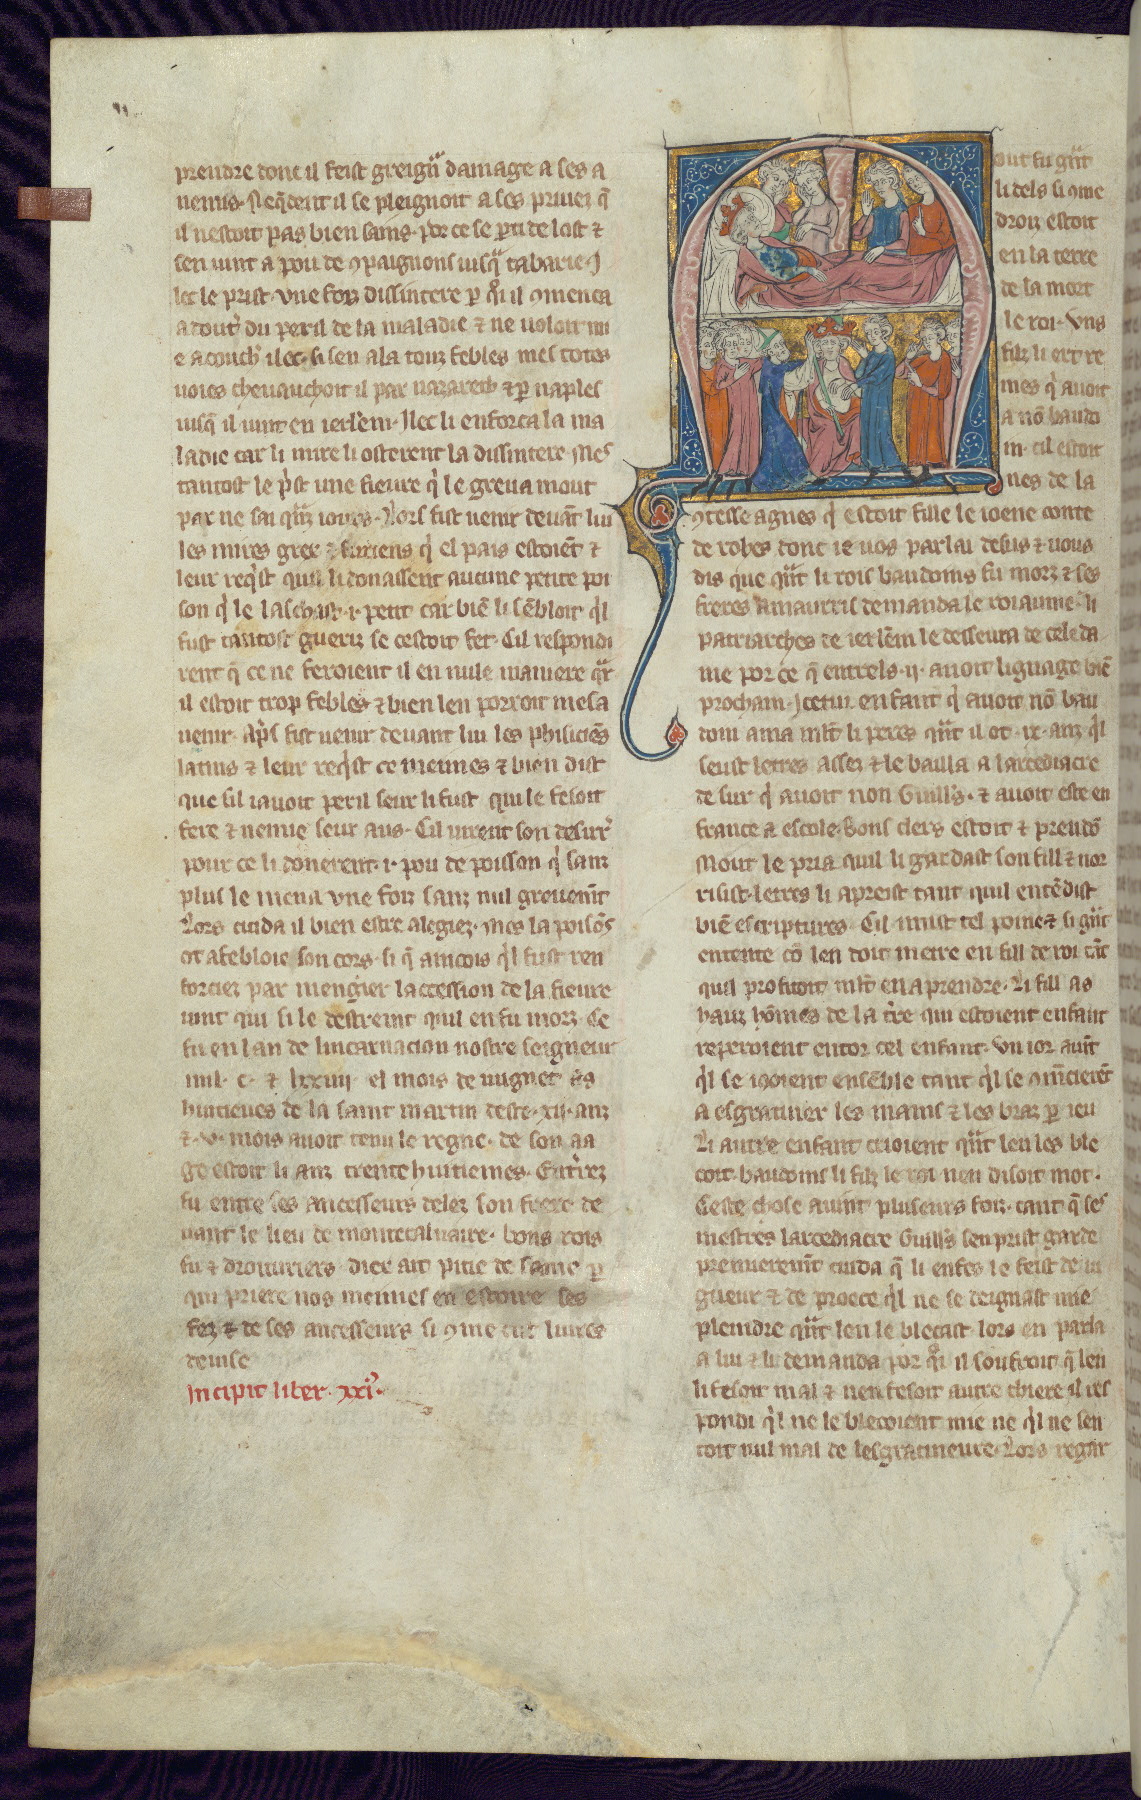 prendre dont il feist greigñ damage a ses a
nemis. Neq̃dent il se pleignoit a ses priuez q̃
il nestoit pas bien sains. por ce se ꝑti de lost ⁊
sen uint a pou de ꝯpaignons iusq̃ tabarie. I
lec le prist. vne forz dissintere ꝑ q̇i il ꝯmenca
a dout᷑ du peril de la maladie ⁊ ne uoloit mi
e acouch᷑ ilec. si sen ala touz febles mes totes
uoies cheuauchoit il par nazareth ⁊ ꝑ naples
iusq̃ il uint en ierl̃em. Ilec li enforca la ma
ladie car li mire li osterent la dissintere. Mes
tantost le p̃st une fieure q̇ le greua mout
par ne sai q̃nz iours. Lors fist uenir deuãt lui
les mires grex ⁊ suriens q̇ el pais estoiẽt ⁊
leur req̇st quil li donassent aucune petite poi
son q̇ le laschast .i. petit car biẽ li sẽbloit q̇l
fust tantost gueriz se cestoit fet. Cil respondi
rent q̃ ce ne feroient il en nule maniere q̃r
il estoit trop febles ⁊ bien len porroit mesa
uenir. Ap̃s fist uenir deuant lui les phisiciẽs
latins ⁊ leur req̇st ce meimes ⁊ bien dist
que sil iauoit peril seur li fust qui le fesoit
fere ⁊ nemie seur aus. Cil uirent son desir᷑
pour ce li donerent .i. pou de poison q̇ sanz
plus le mena vne foiz sanz nul greuem̃t
Lors cuida il bien estre alegiez. Mes la poisõs
ot afebloie son cors. si q̃ aincois q̇l fust ren
forciez par mengier laccession de la fieure
uint qui si le destreint quil en fu morz. Ce
fu en lan de lincarnacion nostre seigneur
mil. c. ⁊ lxxiiii el mois de uignet es
huitieues de la saint martin deste. xii. anz
⁊ .v. mois auoit tenu le regne. de son aa
ge estoit li anz trente huitiemes. Ent᷑rez
fu entre ses ancesseurs delez son frere de
uant le lieu de montecaluaire. bons rois
fu ⁊ droituriers diex ait pitie de same ꝑ
qui priere nos meimes en estoire ses
fez ⁊ de ses ancesseurs si ꝯme cist liures
deuise
Incipit liber. xxi᷑.
out fu g̃nt
li dels si ꝯme
droiz estoit
en la terre
de la mort
le roi. Vns
filz li ert re
mes q̇ auoit
a nõ baudo
in. cil estoit
nes de la
ꝯtesse agnes q̇ estoit fille le ioene conte
de robes dont ie uos parlai desus ⁊ uous
dis que q̃nt li rois baudoins fu morz ⁊ ses
freres Amaurris demanda le roiaume. li
patriarches de ierl̃em le desseura de cele da
me por ce q̃ entrels .ii. auoit lignage biẽ
prochain. Icetui enfant q̇ auoit nõ bau
doin ama ml̃t li peres q̃nt il ot .ix. anz q̇l
seust letres assez ⁊ le bailla a larcediacre
de sur q̇ auoit non Guill's. ⁊ auoit este en
france a escole. bons clers estoit ⁊ preudõ
Mout le pria quil li gardast son fill ⁊ nor
risist. letres li apreist tant quil entẽdist
biẽ escriptures. Cil i mist tel poine ⁊ si g̃nt
entente cõ len doit metre en fill de roi tãt
quil profitoit ml̃t en aprendre. Li fill as
hauz hõmes de la t᷑re qui estoient enfant
reperoient entor cel enfant. Vn ior auĩt
q̇l se iooient ensẽble tant q̇l se ꝯmẽcierẽt
a esgratiner les mains ⁊ les braz ꝑ ieu
Li autre enfant crioient q̃nt len les ble
coit. baudoins li filz le roi nen disoit mot.
Ceste chose auint pluseurs foiz. tant q̃ ses
mestres larcediacre Guill's sen prist garde
premierem̃t cuida q̃ li enfes le feist de ui
gueur ⁊ de proece q̇l ne se deignast mie
pleindre q̃nt len le blecast. lors en parla
a lui ⁊ li demanda por q̇i il soufroit q̃ len
li fesoit mal ⁊ nen fesoit autre chiere il res
pondi q̇l ne le blecoient mie ne q̇l ne sen
toit nul mal de lesgratineure. Lors regar